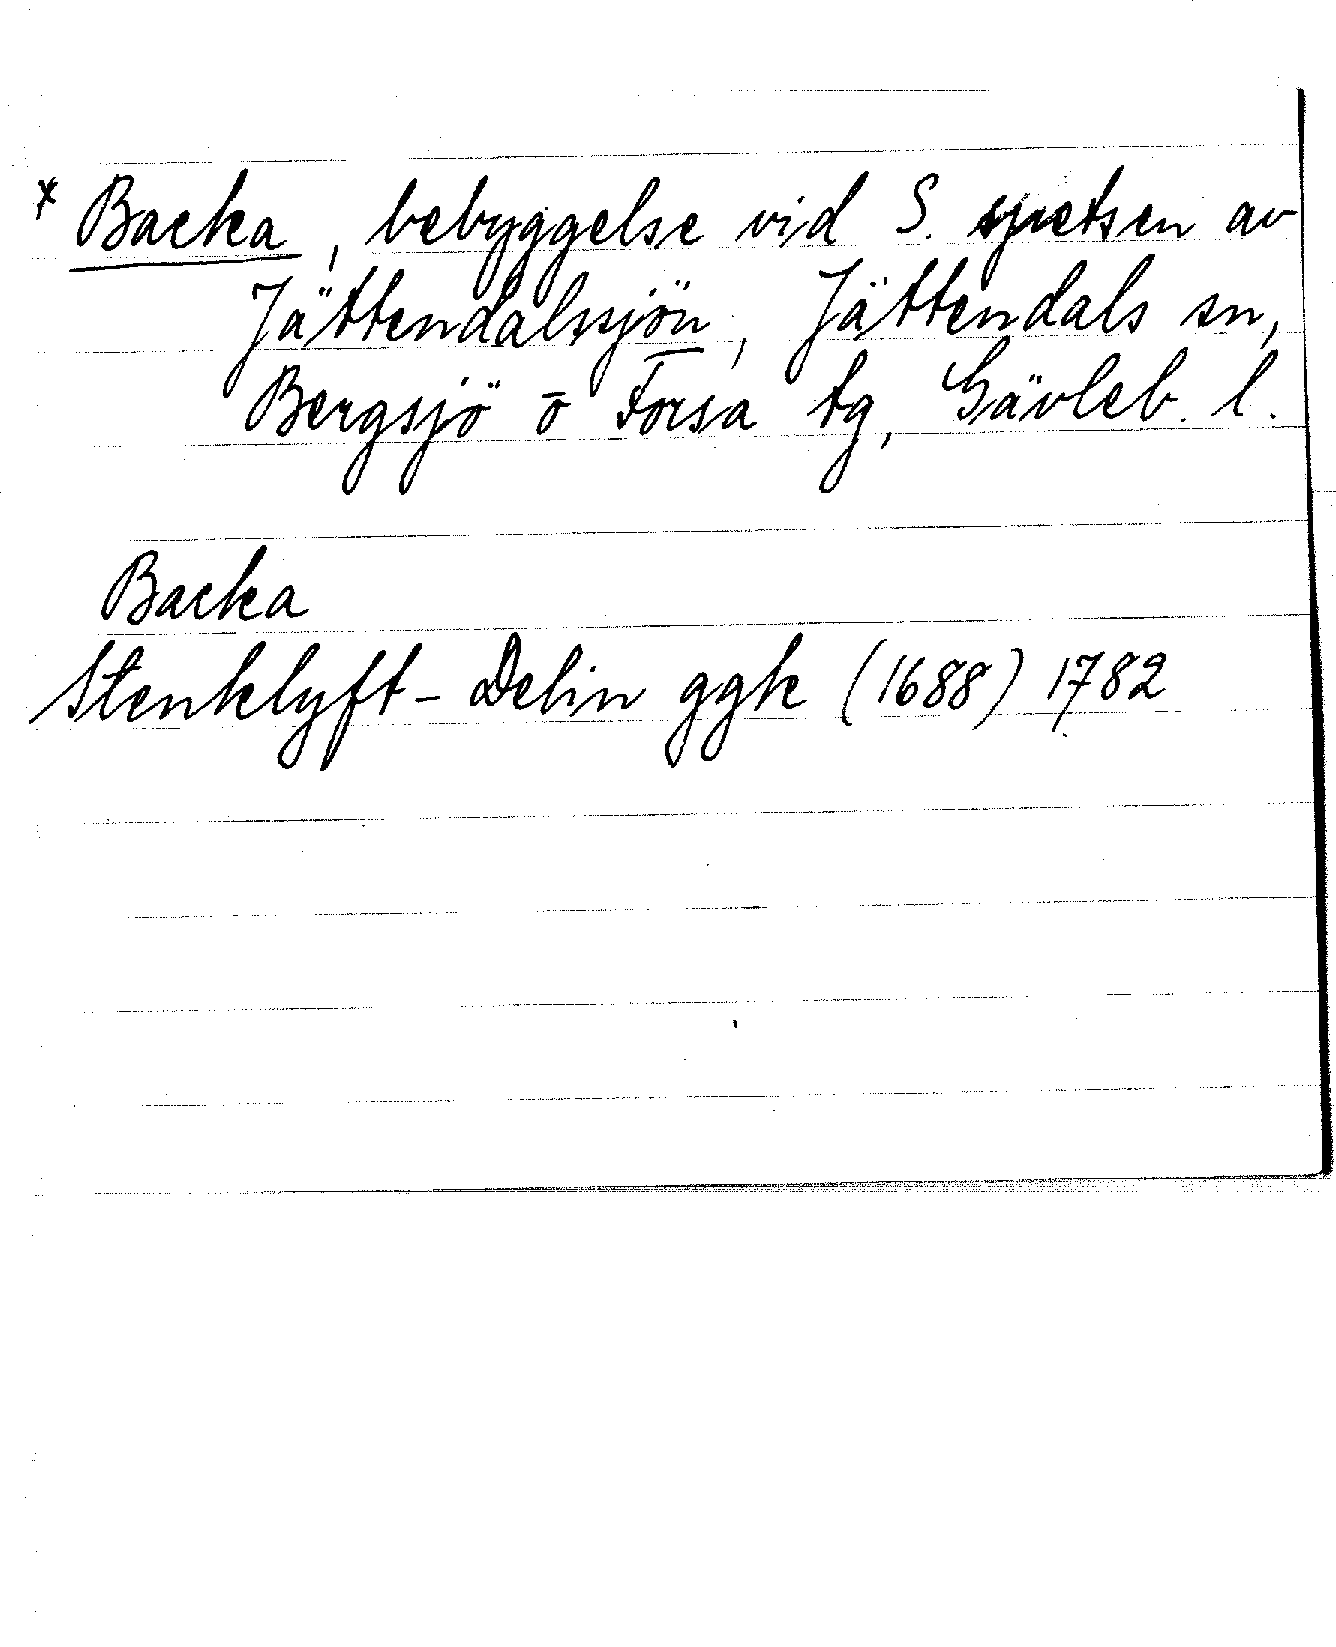 * Backa, bebyggelse vid S. spetsen av
Jättendalssjön, Jättendals sn,
Bergsjö o Forsa tg, Gävleb. l.
Backa
Stenklyft - Delin ggk (1688) 1782